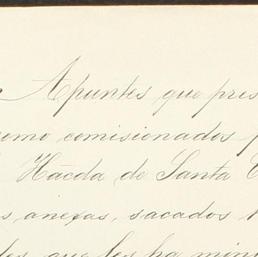 Apuntes que pres
como comisionados p
Hacda de Santa C
s anexas, sacados
que les ha mini